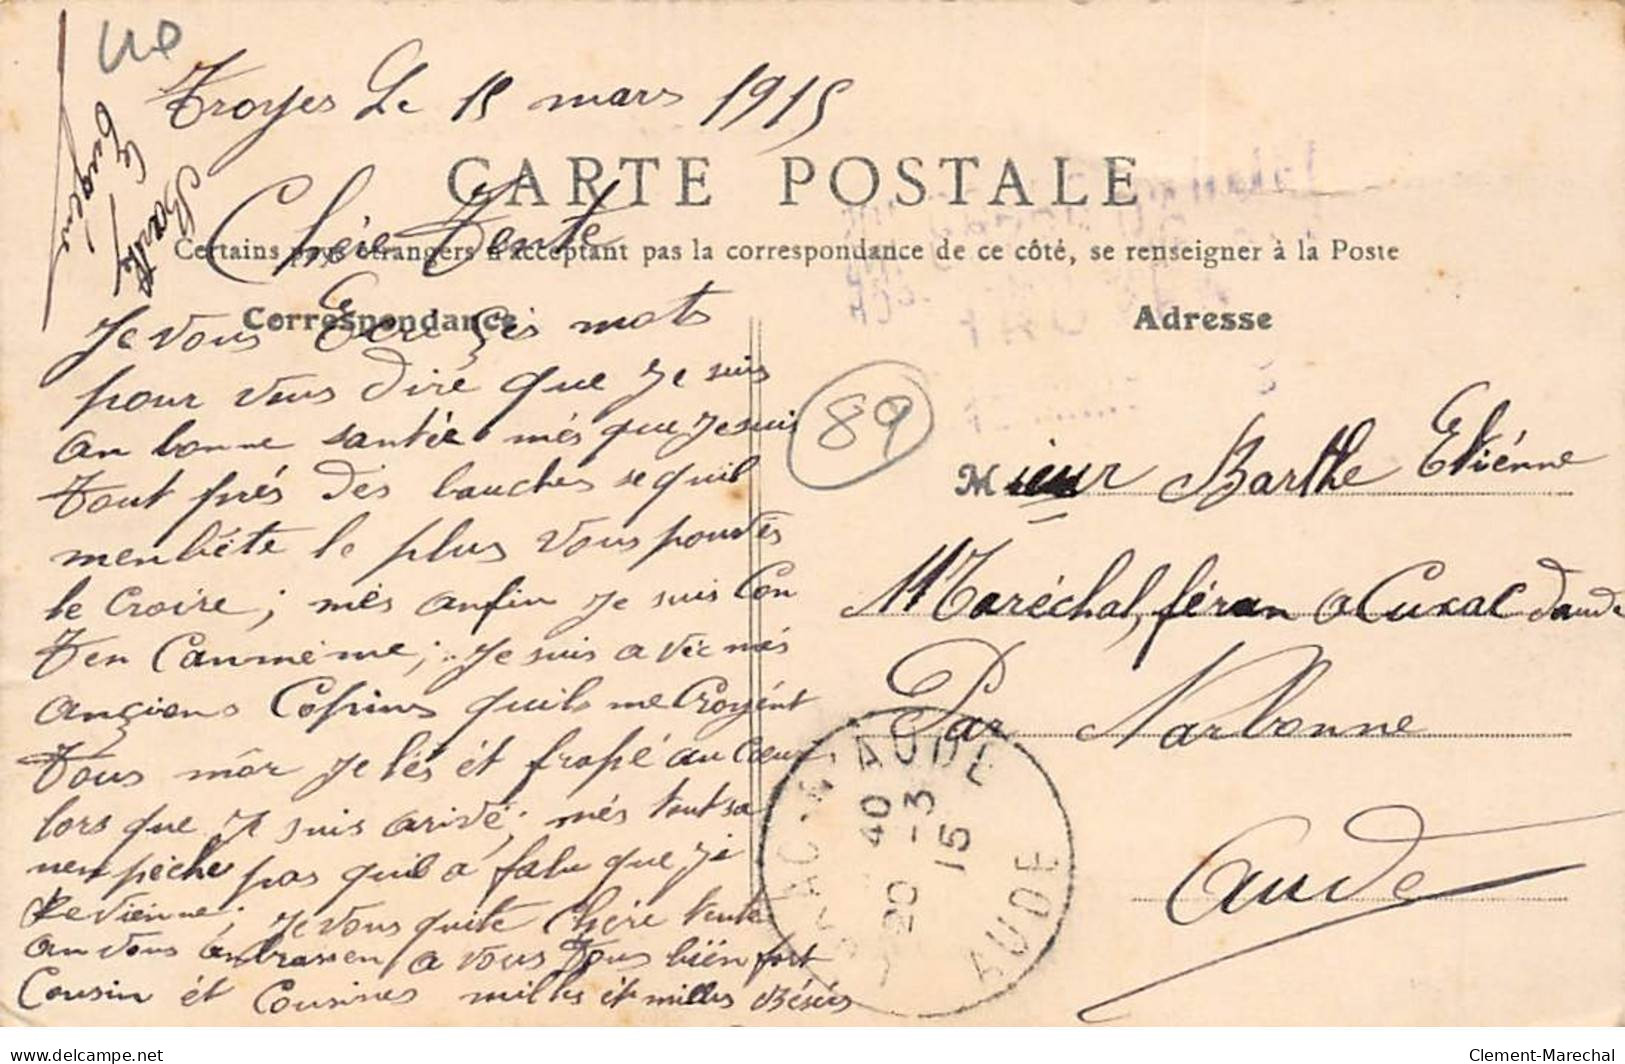 Troyes Le 15 mars 1915
CARTE POSTALE
Chère Tente
Certains pays étrangers n'acceptent pas la correspondance de ce côté, se renseigner à la Poste
Correspondance
Adresse
Je vous Ecre ses mots
pour vous dire que je suis
an bonne santée més que je suis
Tout prés des bauches se quil
menbéte le plus vous pouvés
le croire ; més anfin je suis Con
Ten Canmeme ; je suis avec més
ançiens Copins quils me Croyént
Tous mor je lés ét frapé au Cœur
lors que je suis arivé ; més tout sa
nenpéche pas quil a falu que je
Revienne ; je vous quite Chére tente
an vous anbrassen a vous Tous biën fort
Cousin ét Cousines milles ét milles Bésés
Eugène
Barthe
89
Mieur Barthe Etiénne
Maréchal, féran a Cuxac daude
Par Narbonne
Aude
CUXAC-D'AUDE
20 -3 15
AUDE
delcampe.net
Clement-Marechal